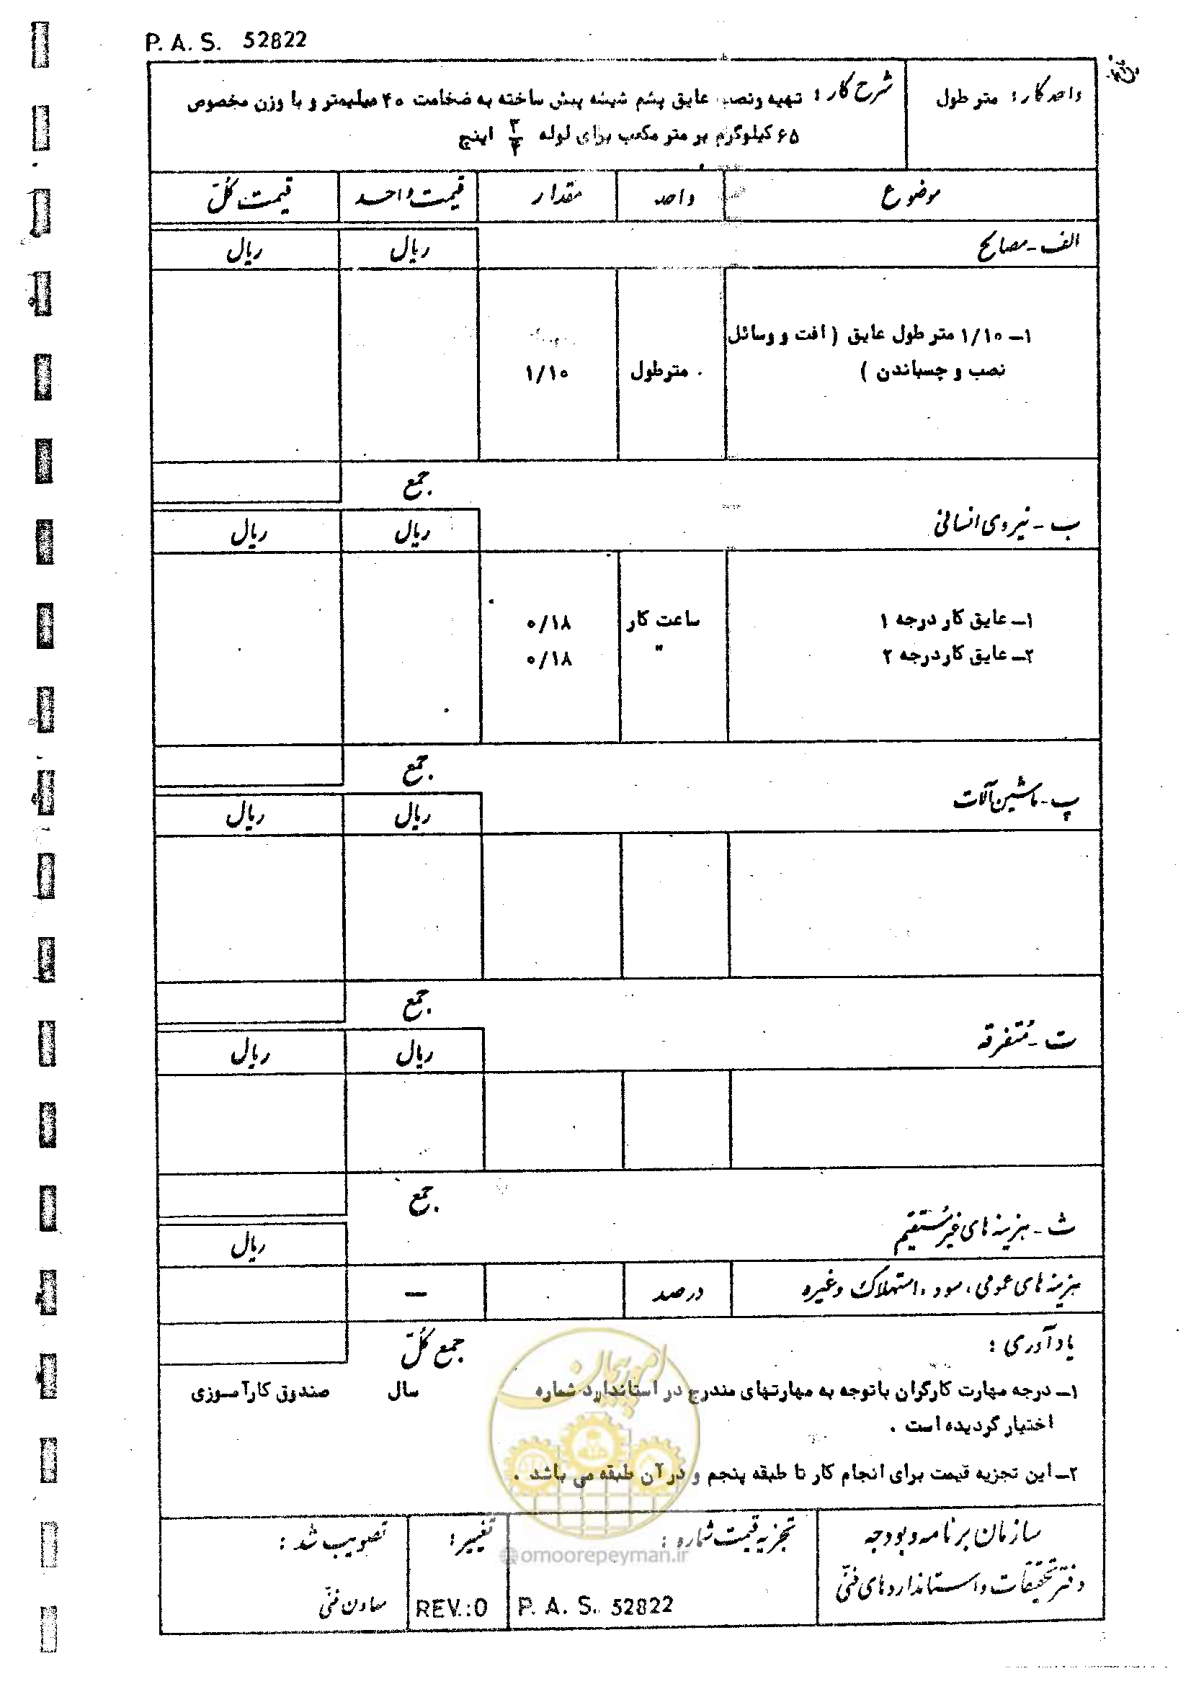 P. A. S. 52822
واحد کار : متر طول
شرح کار : تهیه ونصب عایق پشم شیشه پیش ساخته به ضخامت ۴۰ میلیمتر و با وزن مخصوص
۶۵ کیلوگرم بر متر مکعب برای لوله ۳/۴ اینچ
موضوع واحد مقدار قیمت واحد قیمت کل
الف - مصالح ریال ریال
۱ـ ۱/۱۰ متر طول عایق ( افت و وسائل
نصب و چسباندن ) متر طول ۱/۱۰
جمع
ب - نیروی انسانی ریال ریال
۱ـ عایق کار درجه ۱ ساعت کار ۰/۱۸
۲ـ عایق کار درجه ۲ " ۰/۱۸
جمع
پ - ماشین آلات ریال ریال
جمع
ت - متفرقه ریال ریال
جمع
ث - هزینه های غیر مستقیم ریال
هزینه های عمومی ، سود ، استهلاک و غیره درصد —
یادآوری : جمع کل
۱ـ درجه مهارت کارگران با توجه به مهارتهای مندرج در استاندارد شماره سال صندوق کارآموزی
اختیار گردیده است .
۲ـ این تجزیه قیمت برای انجام کار تا طبقه پنجم و در آن طبقه می باشد .
امور پیمان
@omoorepeyman.ir
سازمان برنامه و بودجه
دفتر تحقیقات و استانداردهای فنی
تجزیه قیمت شماره :
P. A. S. 52822
تغییر :
REV.:0
تصویب شد :
معاون فنی